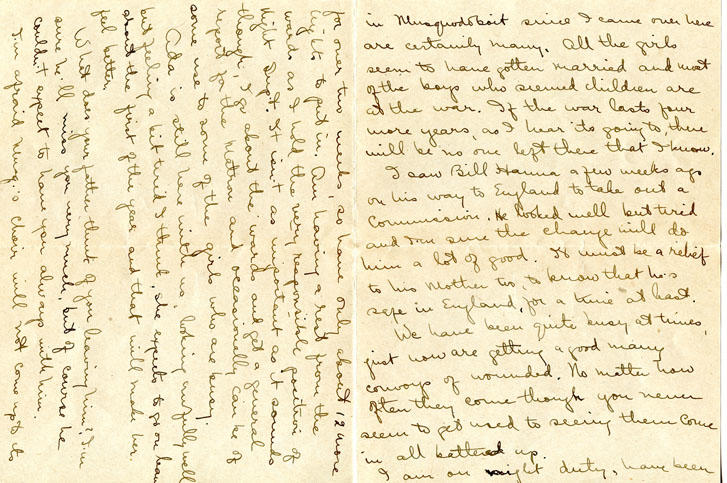 in Musquodoboit since I came over here
are certainly many. All the girls
seem to have gotten married and most
of the boys who seemed children are
at the war. If the war lasts four
more years, as I hear its going to, there
will be no one left there that I know.
I saw Bill Hanna a few weeks ago
on his way to England to take out a
Commission. He looked well but tired
and I'm sure the change will do
him a lot of good. It must be a relief
to his Mother too, to know that he's
safe in England, for a time at least.
We have been quite busy at times,
just now are getting a good many
convoys of wounded. No matter how
often they come though you never
seem to get used to seeing them come
in all battered up.
I am on night duty, have been
for over two weeks, so have only about 12 more
nights to put in. Am having a rest from the
wards as I hold the very responsible position of
Night Supt. It isn't as important as it sounds
though, I go about the wards and get a general
report for the Matron and occasionally can be of
some use to some of the girls who are busy.
Ada is still here with us, looking awfully well
but feeling a bit tired I think, she expects to go on leave
about the first of the year and that will make her
feel better.
What does your father think of you leaving him? I'm
sure he'll miss you very much, but of course he
couldn't expect to have you always with him.
I'm afraid King's chair will not come up to its